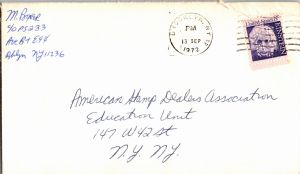 M. Power
c/o PS 233
Ave B + E 94
Bklyn NY 11236
BROOKLYN, NY
PM
13 SEP
1973
EINSTEIN
American Stamp Dealers Association
Education Unit
147 W 42 St
N.Y. N.Y.